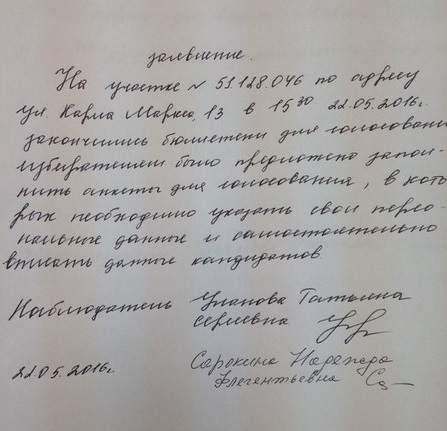 заявление.
На участке № 51.128.046 по адресу
ул. Карла Маркса, 13 в 15 30 22.05.2016г.
закончились бюллетени для голосования
избирателям было предложено запол-
нить анкеты для голосования, в кото
рых необходимо указать свои персо
нальные данные и самостоятельно
вписать данные кандидатов.
Наблюдатель Уланова Татьяна
Сергеевна
22.05.2016г. Сорокина
Флегентьевна